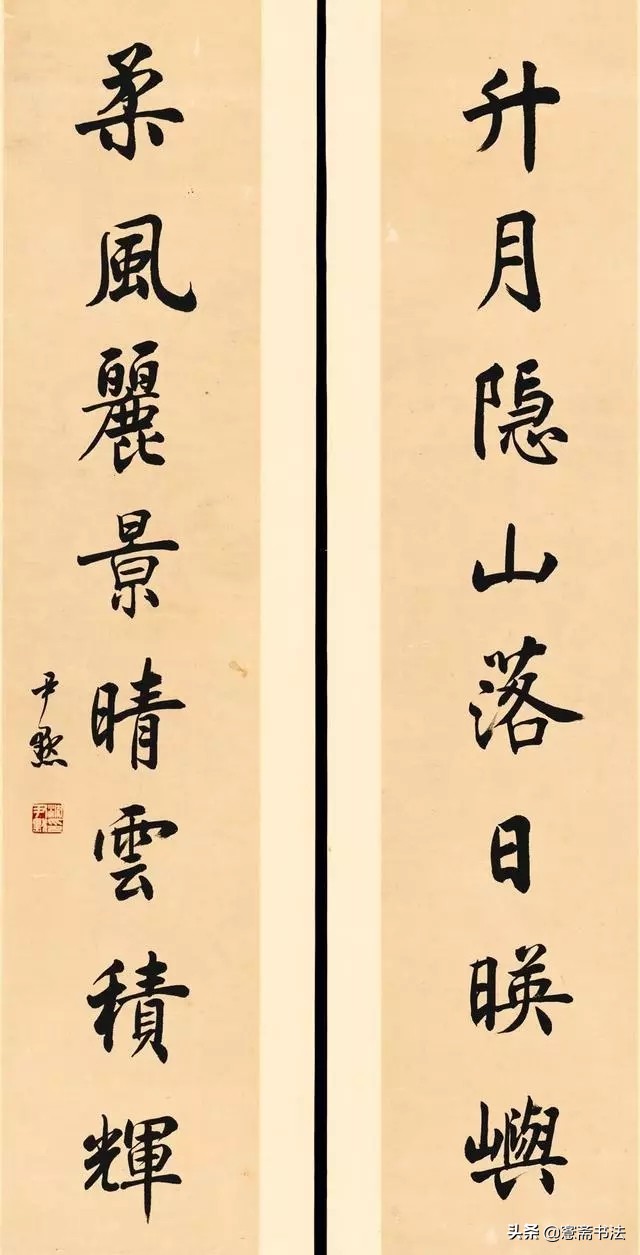 升月隐山落日暎嶼
柔風麗景晴雲積輝
尹默
头条@蹇斋书法